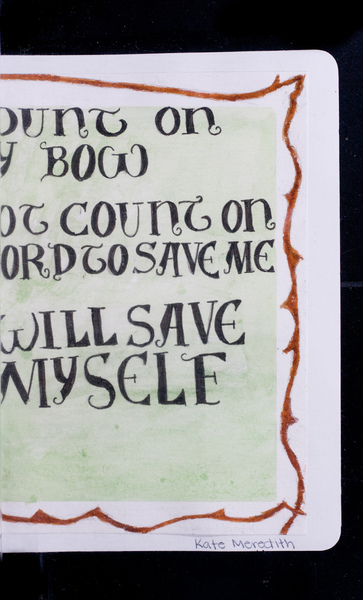 OUNT ON
Y BOW
OT COUNT ON
ORD TO SAVE ME
WILL SAVE
MYSELF
Kate Meredith